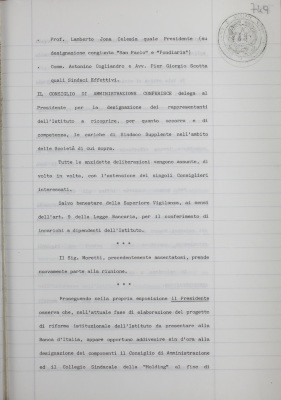 749
. Prof. Lamberto Jona Celesia quale Presidente (su
designazione congiunta "San Paolo" e "Fondiaria")
. Comm. Antonino Cogliandro e Avv. Pier Giorgio Scotta
quali Sindaci Effettivi.
IL CONSIGLIO DI AMMINISTRAZIONE CONFERISCE delega al
Presidente per la designazione dei rappresentanti
dell'Istituto a ricoprire, per quanto occorra e di
competenza, le cariche di Sindaco Supplente nell'ambito
delle Società di cui sopra.
Tutte le anzidette deliberazioni vengono assunte, di
volta in volta, con l'astensione dei singoli Consiglieri
interessati.
Salvo benestare della Superiore Vigilanza, ai sensi
dell'art. 8 della Legge Bancaria, per il conferimento di
incarichi a dipendenti dell'Istituto.
* * *
Il Sig. Moretti, precedentemente assentatosi, prende
nuovamente parte alla riunione.
* * *
Proseguendo nella propria esposizione il Presidente
osserva che, nell'attuale fase di elaborazione del progetto
di riforma istituzionale dell'Istituto da presentare alla
Banca d'Italia, appare opportuno addivenire sin d'ora alla
designazione dei componenti il Consiglio di Amministrazione
ed il Collegio Sindacale della "Holding" al fine di